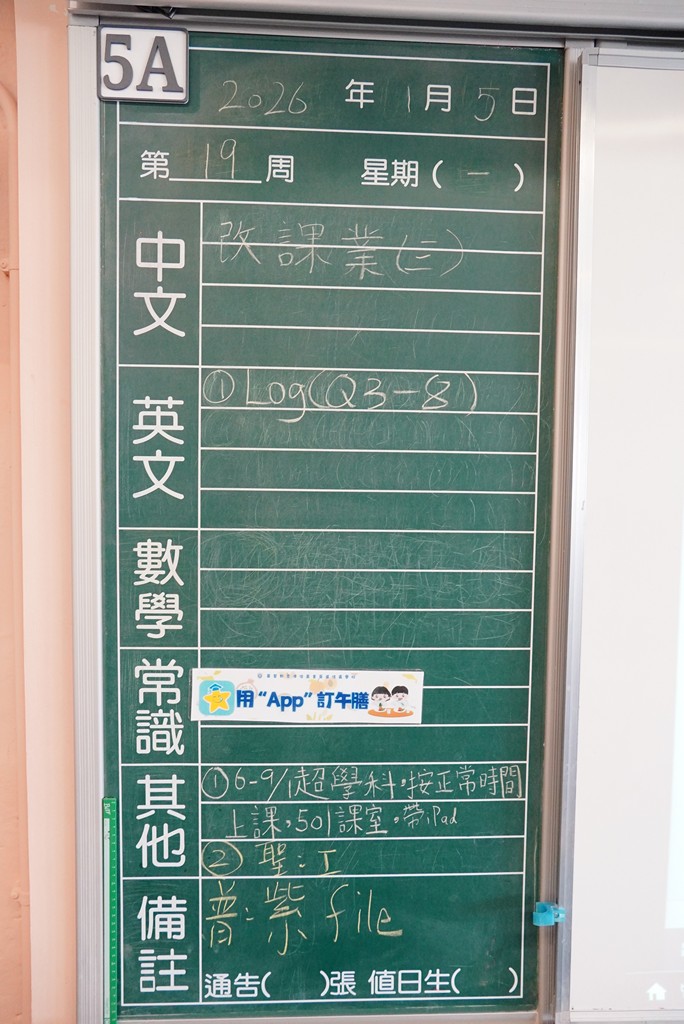 5A
2026 年 1 月 5 日
第 19 周 星期 ( 一 )
中文
改課業(三)
英文
① Log(Q3-8)
數學
常識
用 “App” 訂午膳
其他
① 6-9/1超學科,按正常時間
上課,501課室,帶iPad
② 聖:工
備註
普:紫 file
通告( )張 值日生( )